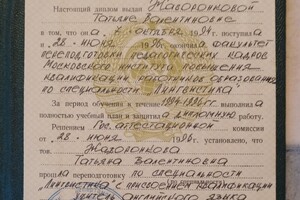 Настоящий диплом выдан Жаворонковой
Татьяне Валентиновне
в том, что она 4 октября 1994 поступила
и 28 июня 1996 окончила факультет
переподготовки педагогических кадров
Московского института повышения
квалификации работников образования
по специальности "Лингвистика"
За период обучения с 1994-1996 гг. выполнила
полностью учебный план и защитила дипломную работу.
Решением Гос. аттестационной комиссии
от 28 июня 1996. установлено, что
Жаворонкова
Татьяна Валентиновна
прошла переподготовку по специальности
"Лингвистика" с присвоением квалификации
учитель английского языка